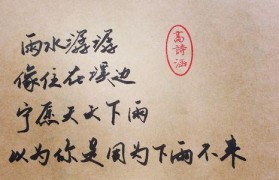 雨水潺潺
像住在溪边
宁愿天天下雨
以为你是因为下雨不来
高诗涵